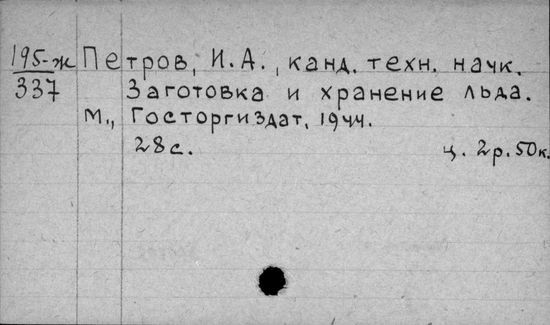 195-ж Петров, И.А., канд. техн. наук.
337 Заготовка и хранение льда.
М., Госторгиздат, 1944.
28с. ц. 2р.50к.